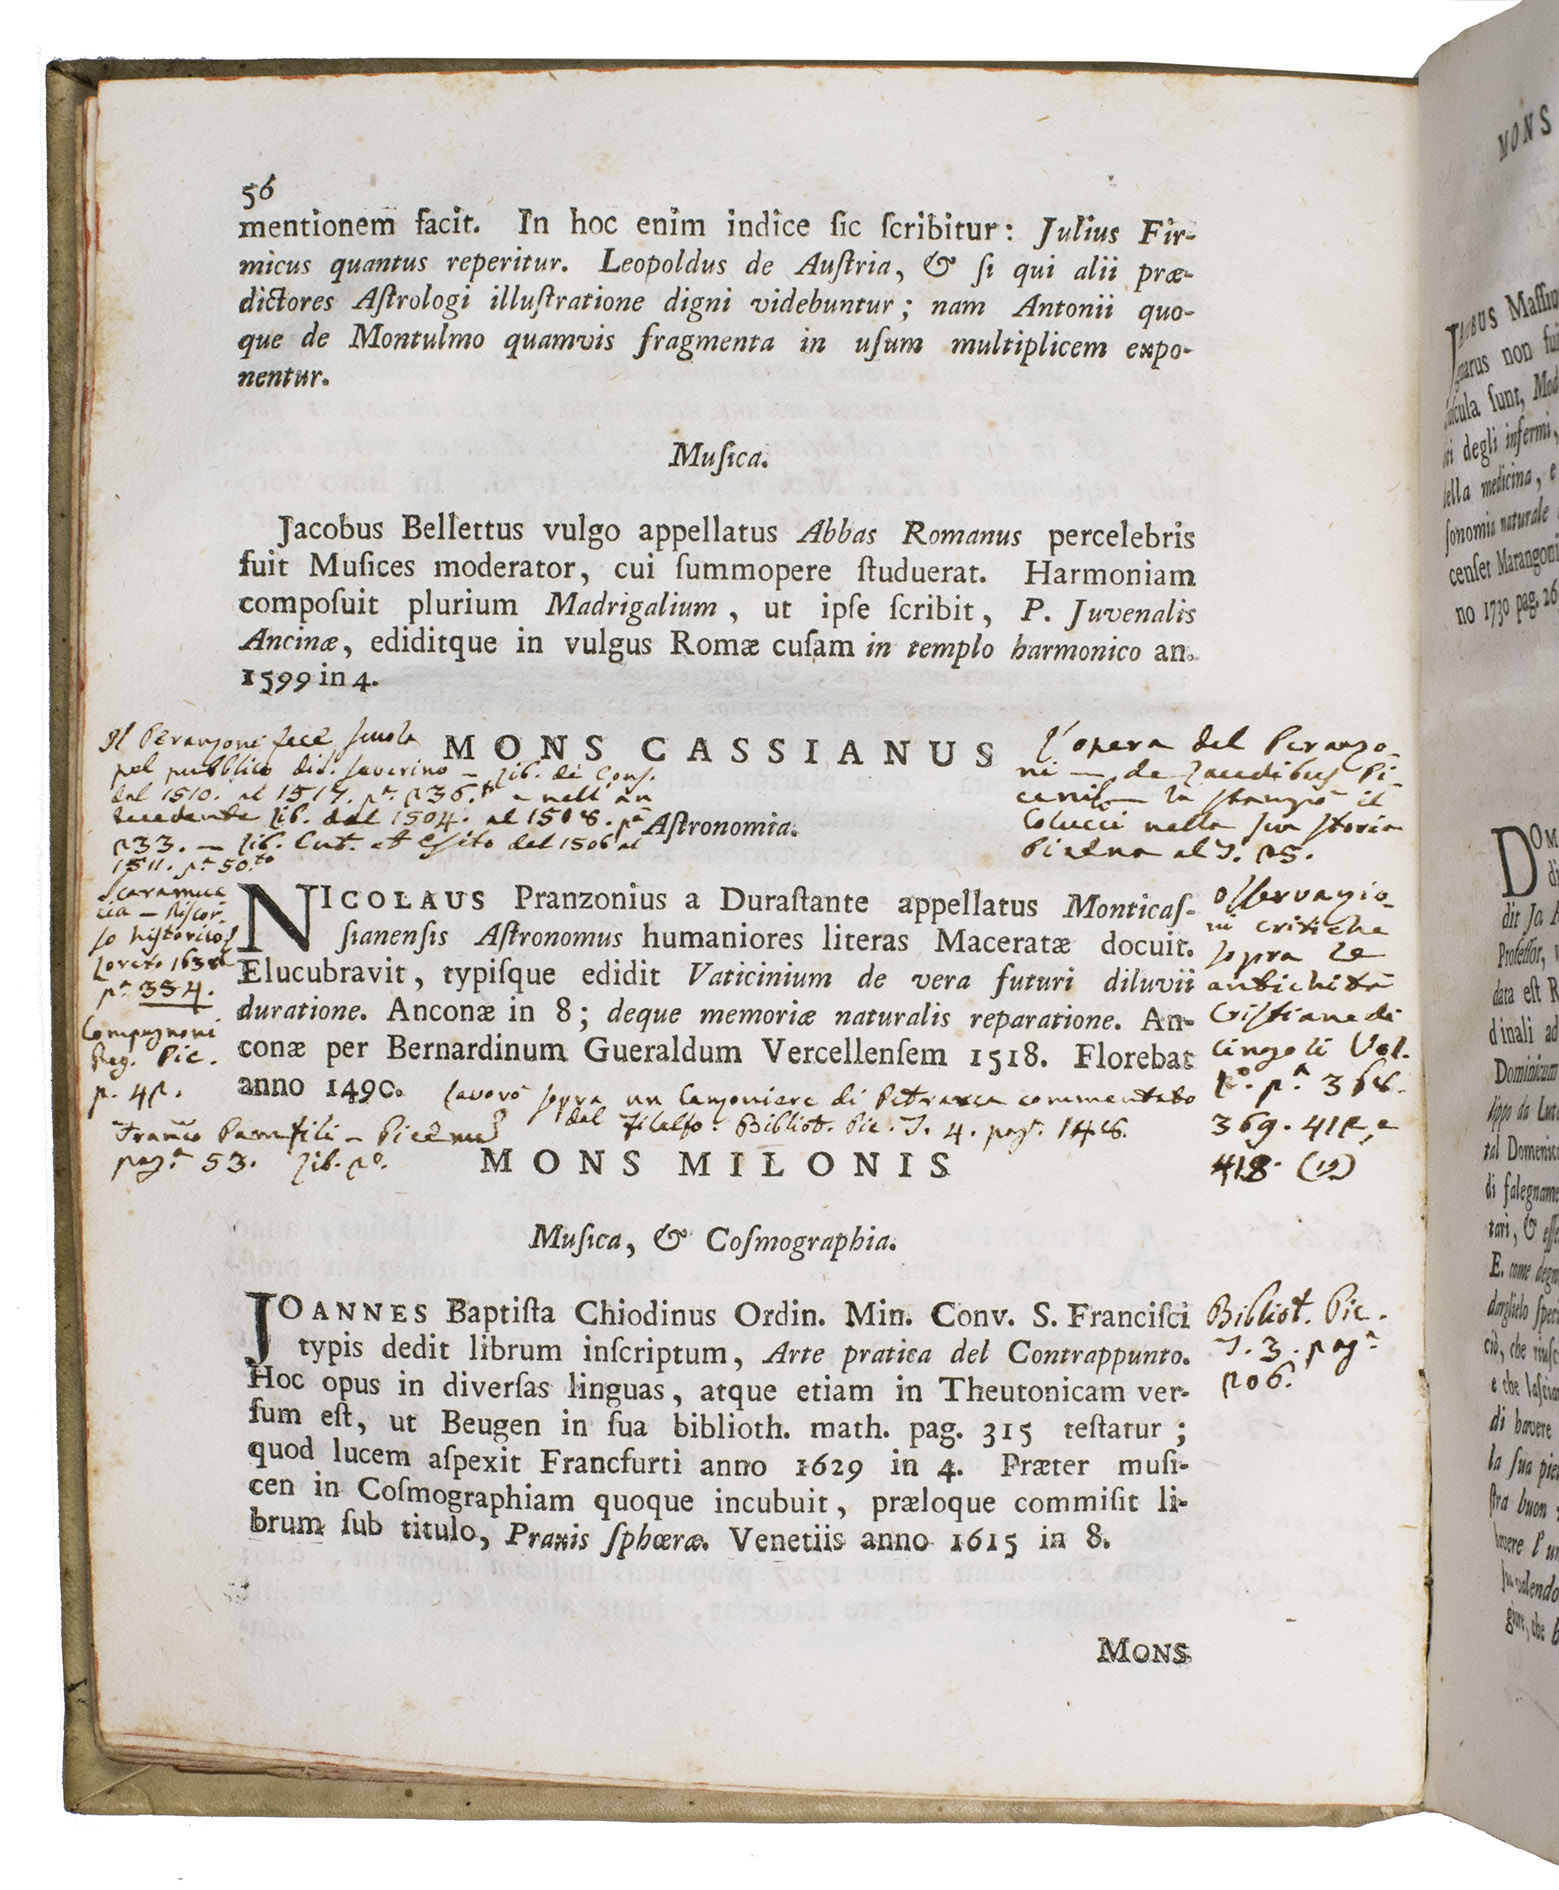 56
mentionem facit. In hoc enim indice sic ſcribitur: Julius Fir-
micus quantus reperitur. Leopoldus de Auſtria, & ſi qui alii præ-
dictores Aſtrologi illuſtratione digni videbuntur; nam Antonii quo-
que de Montulmo quamvis fragmenta in uſum multiplicem expo-
nentur.
Muſica.
Jacobus Bellettus vulgo appellatus Abbas Romanus percelebris
fuit Muſices moderator, cui ſummopere ſtuduerat. Harmoniam
compoſuit plurium Madrigalium, ut ipſe ſcribit, P. Juvenalis
Ancinæ, ediditque in vulgus Romæ cuſam in templo harmonico an.
1599 in 4.
Il Peranzoni fece scuola
pel pubblico di S. Severino – Lib. di Cons.
dal 1510. al 1517. p.
dal 1504. al 1508. p.a
233. – Lib. Ent. et Esito dal 1506 al
1511. p.a 50.to
MONS CASSIANUS
L'opera del Peranzo-
ni – de Laudibus Pi-
ceni – la stampò il
Colucci nella sua storia
Picena al T. 25.
Aſtronomia.
Scaramuc
cia – discor-
so historico
Loreto 1638
p.a 334.
Compagnoni
Reg. Pic.
p. 42.
Franco Panfili – Piceno
pag.a 53. Lib. 2o.
NICOLAUS Pranzonius a Duraſtante appellatus Monticaſ-
ſianenſis Aſtronomus humaniores literas Maceratæ docuit.
Elucubravit, typiſque edidit Vaticinium de vera futuri diluvii
duratione. Anconæ in 8; deque memoriæ naturalis reparatione. An-
conæ per Bernardinum Gueraldum Vercellenſem 1518. Florebat
anno 1490.
Lavorò sopra un Canzoniere di Petrarca commentato
dal Filelfo. Bibliot. Pic. T. 4. pag. 148.
Osservazio-
ni critiche
sopra le
antichità
Cristiane di
Cingoli Vol.
p.a 368.
369. 412, e
418. (12)
MONS MILONIS
Muſica, & Coſmographia.
JOANNES Baptiſta Chiodinus Ordin. Min. Conv. S. Franciſci
typis dedit librum inſcriptum, Arte pratica del Contrappunto.
Hoc opus in diverſas linguas, atque etiam in Theutonicam ver-
ſum eſt, ut Beugen in ſua biblioth. math. pag. 315 teſtatur;
quod lucem aſpexit Francfurti anno 1629 in 4. Præter muſi-
cen in Coſmographiam quoque incubuit, præloque commiſit li-
brum ſub titulo, Praxis ſphœræ. Venetiis anno 1615 in 8.
Bibliot. Pic.
T. 3. pag.a
206.
MONS
MONS
JACOBUS Maſſim
ignarus non fui
ſunt, Mod
degli infermi,
della medicina, e
ſonomia naturale
cenſet Marangoni
no 1730 pag. 26
DOM
di
dit Jo
Profeſſor,
data eſt R
dinali ad
Dominicum
lippo da Luta
tal Domenico
di falegname
tari, & eſſe
E. come degn
darglielo ſpeci
ciò, che riuſc
e che laſcia
di havere
la ſua pie
ſtra buon
havere l'un